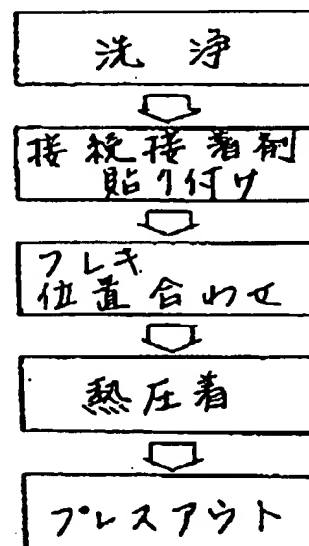 洗浄
接続接着剤
貼り付け
フレキ
位置合わせ
熱圧着
プレスアウト